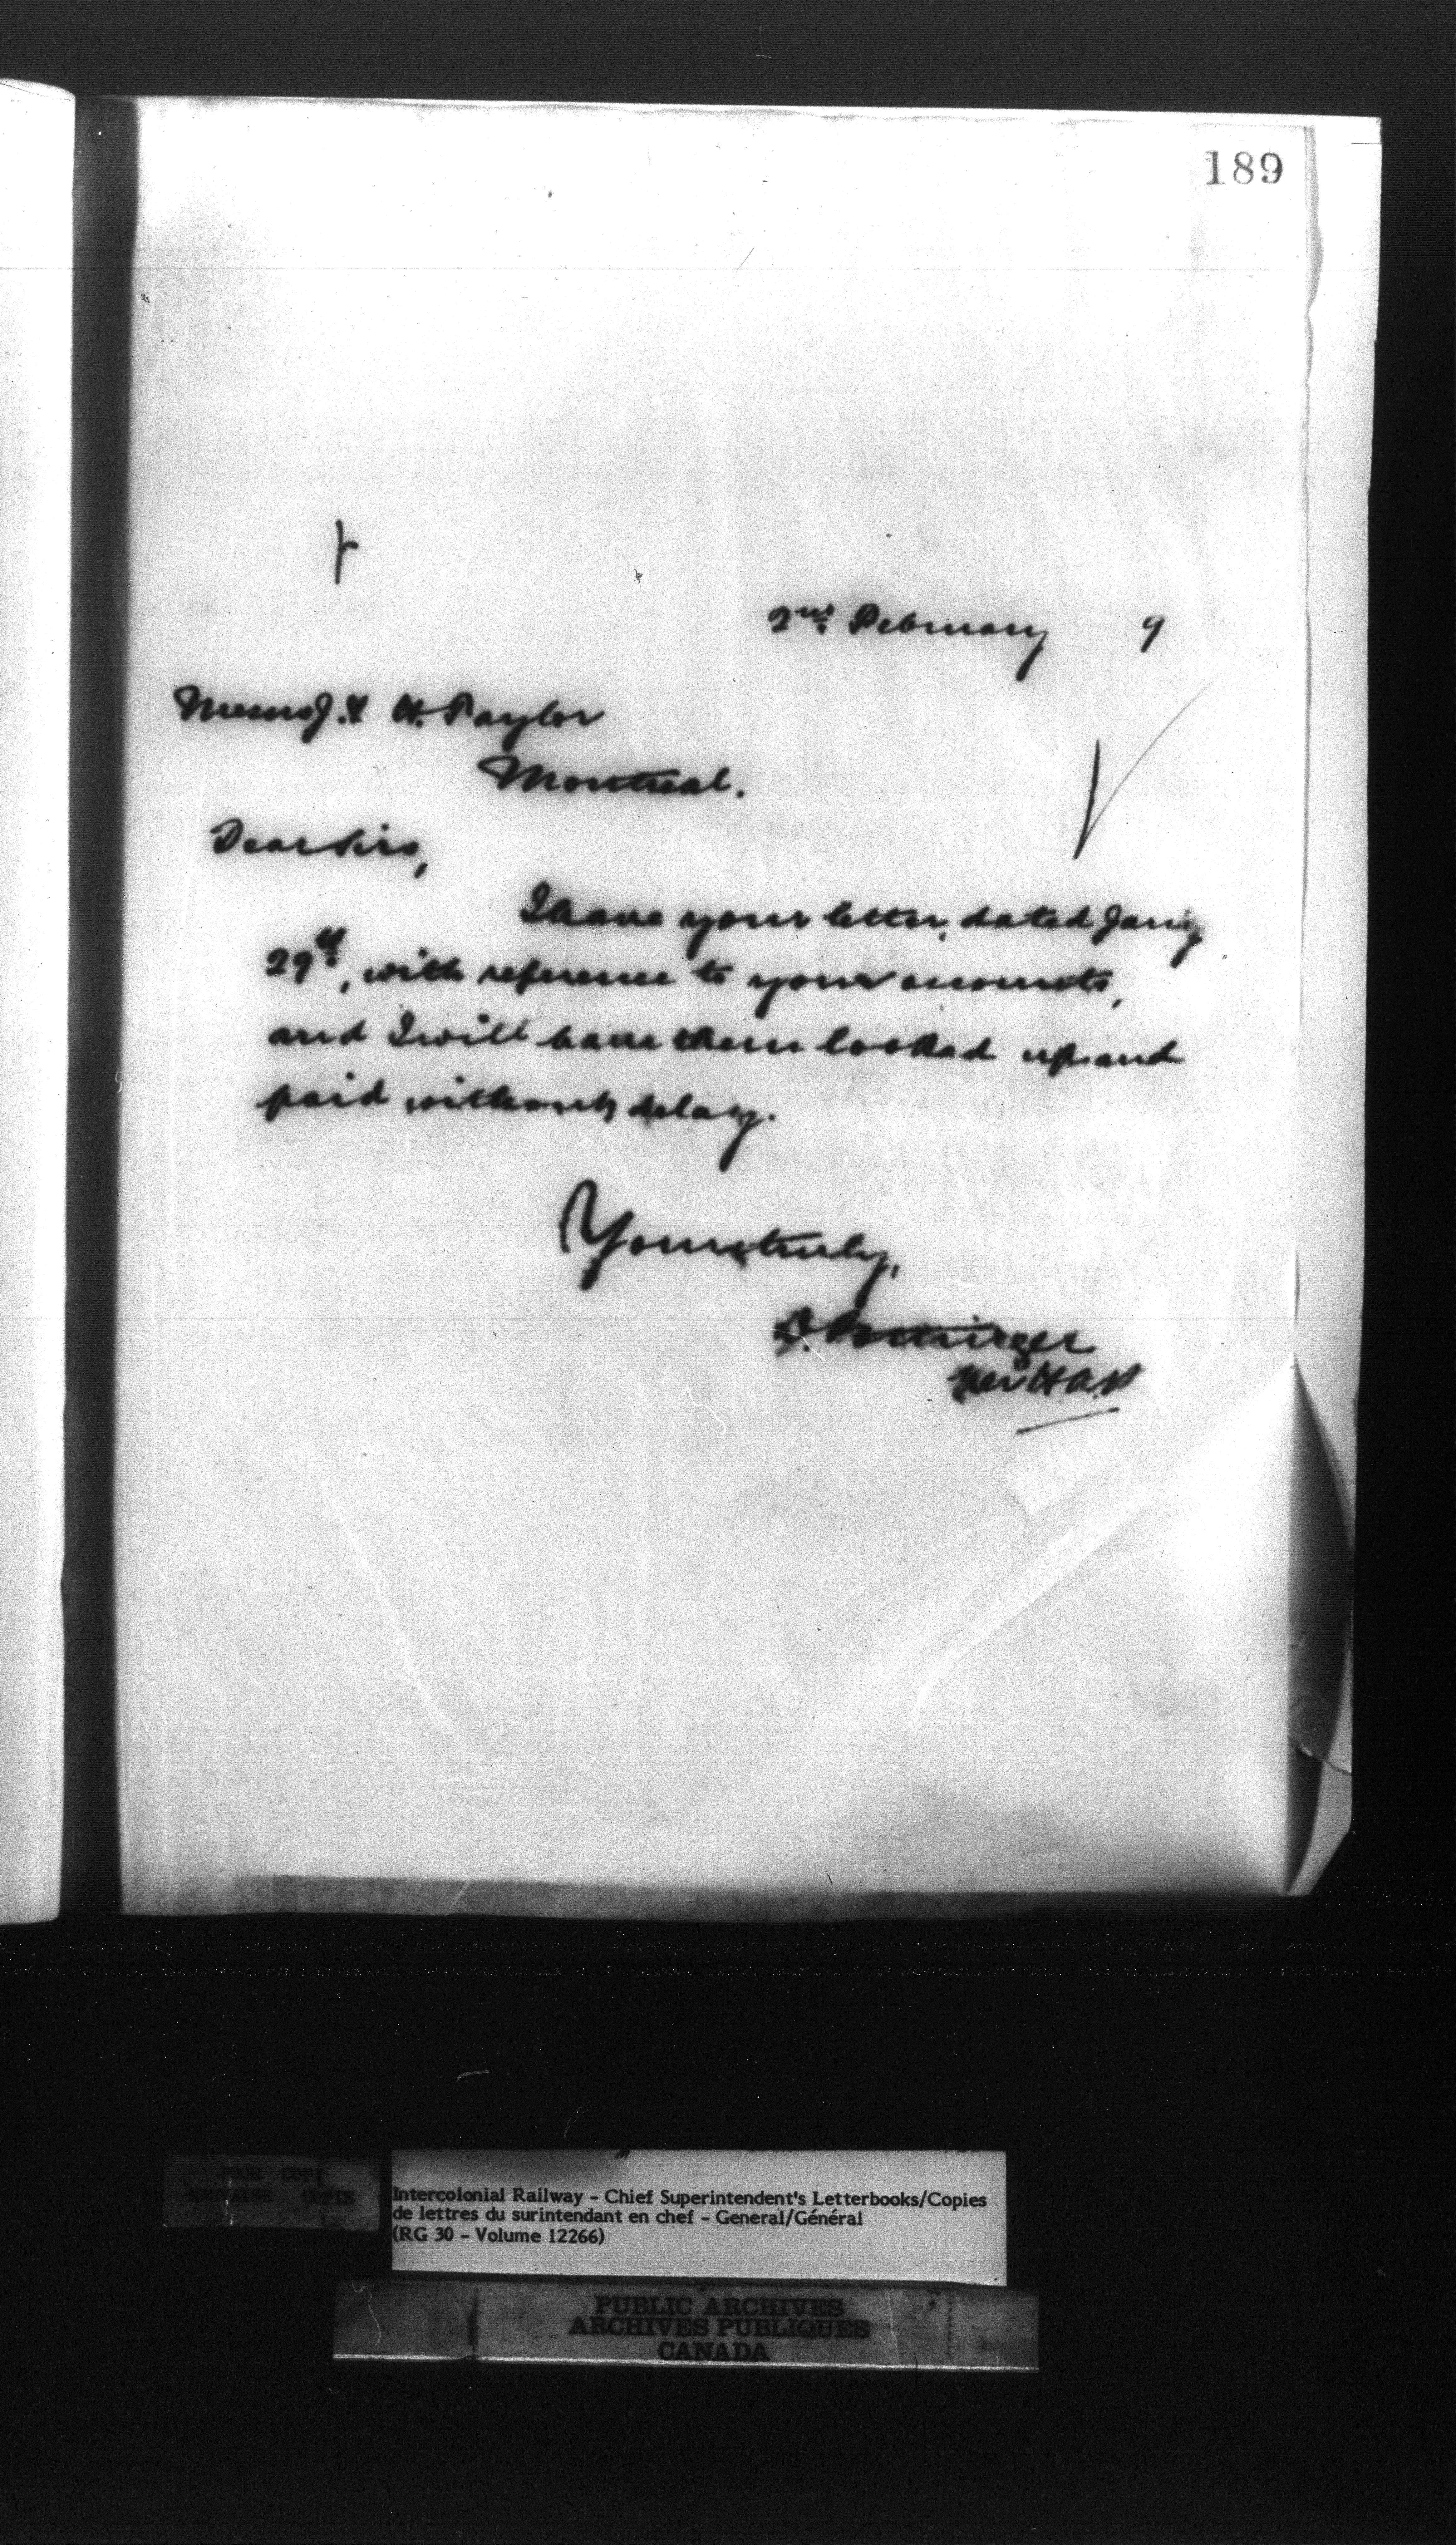 189
2nd February 9
Messrs J. & H. Taylor
Montreal.
Dear Sirs,
I have your letter, dated Jany
29th, with reference to your accounts,
and I will have them looked up and
paid without delay.
Yours truly,
D. Pottinger
per
POOR COPY
MAUVAISE COPIE
Intercolonial Railway - Chief Superintendent's Letterbooks/Copies
de lettres du surintendant en chef - General/Général
(RG 30 - Volume 12266)
PUBLIC ARCHIVES
ARCHIVES PUBLIQUES
CANADA